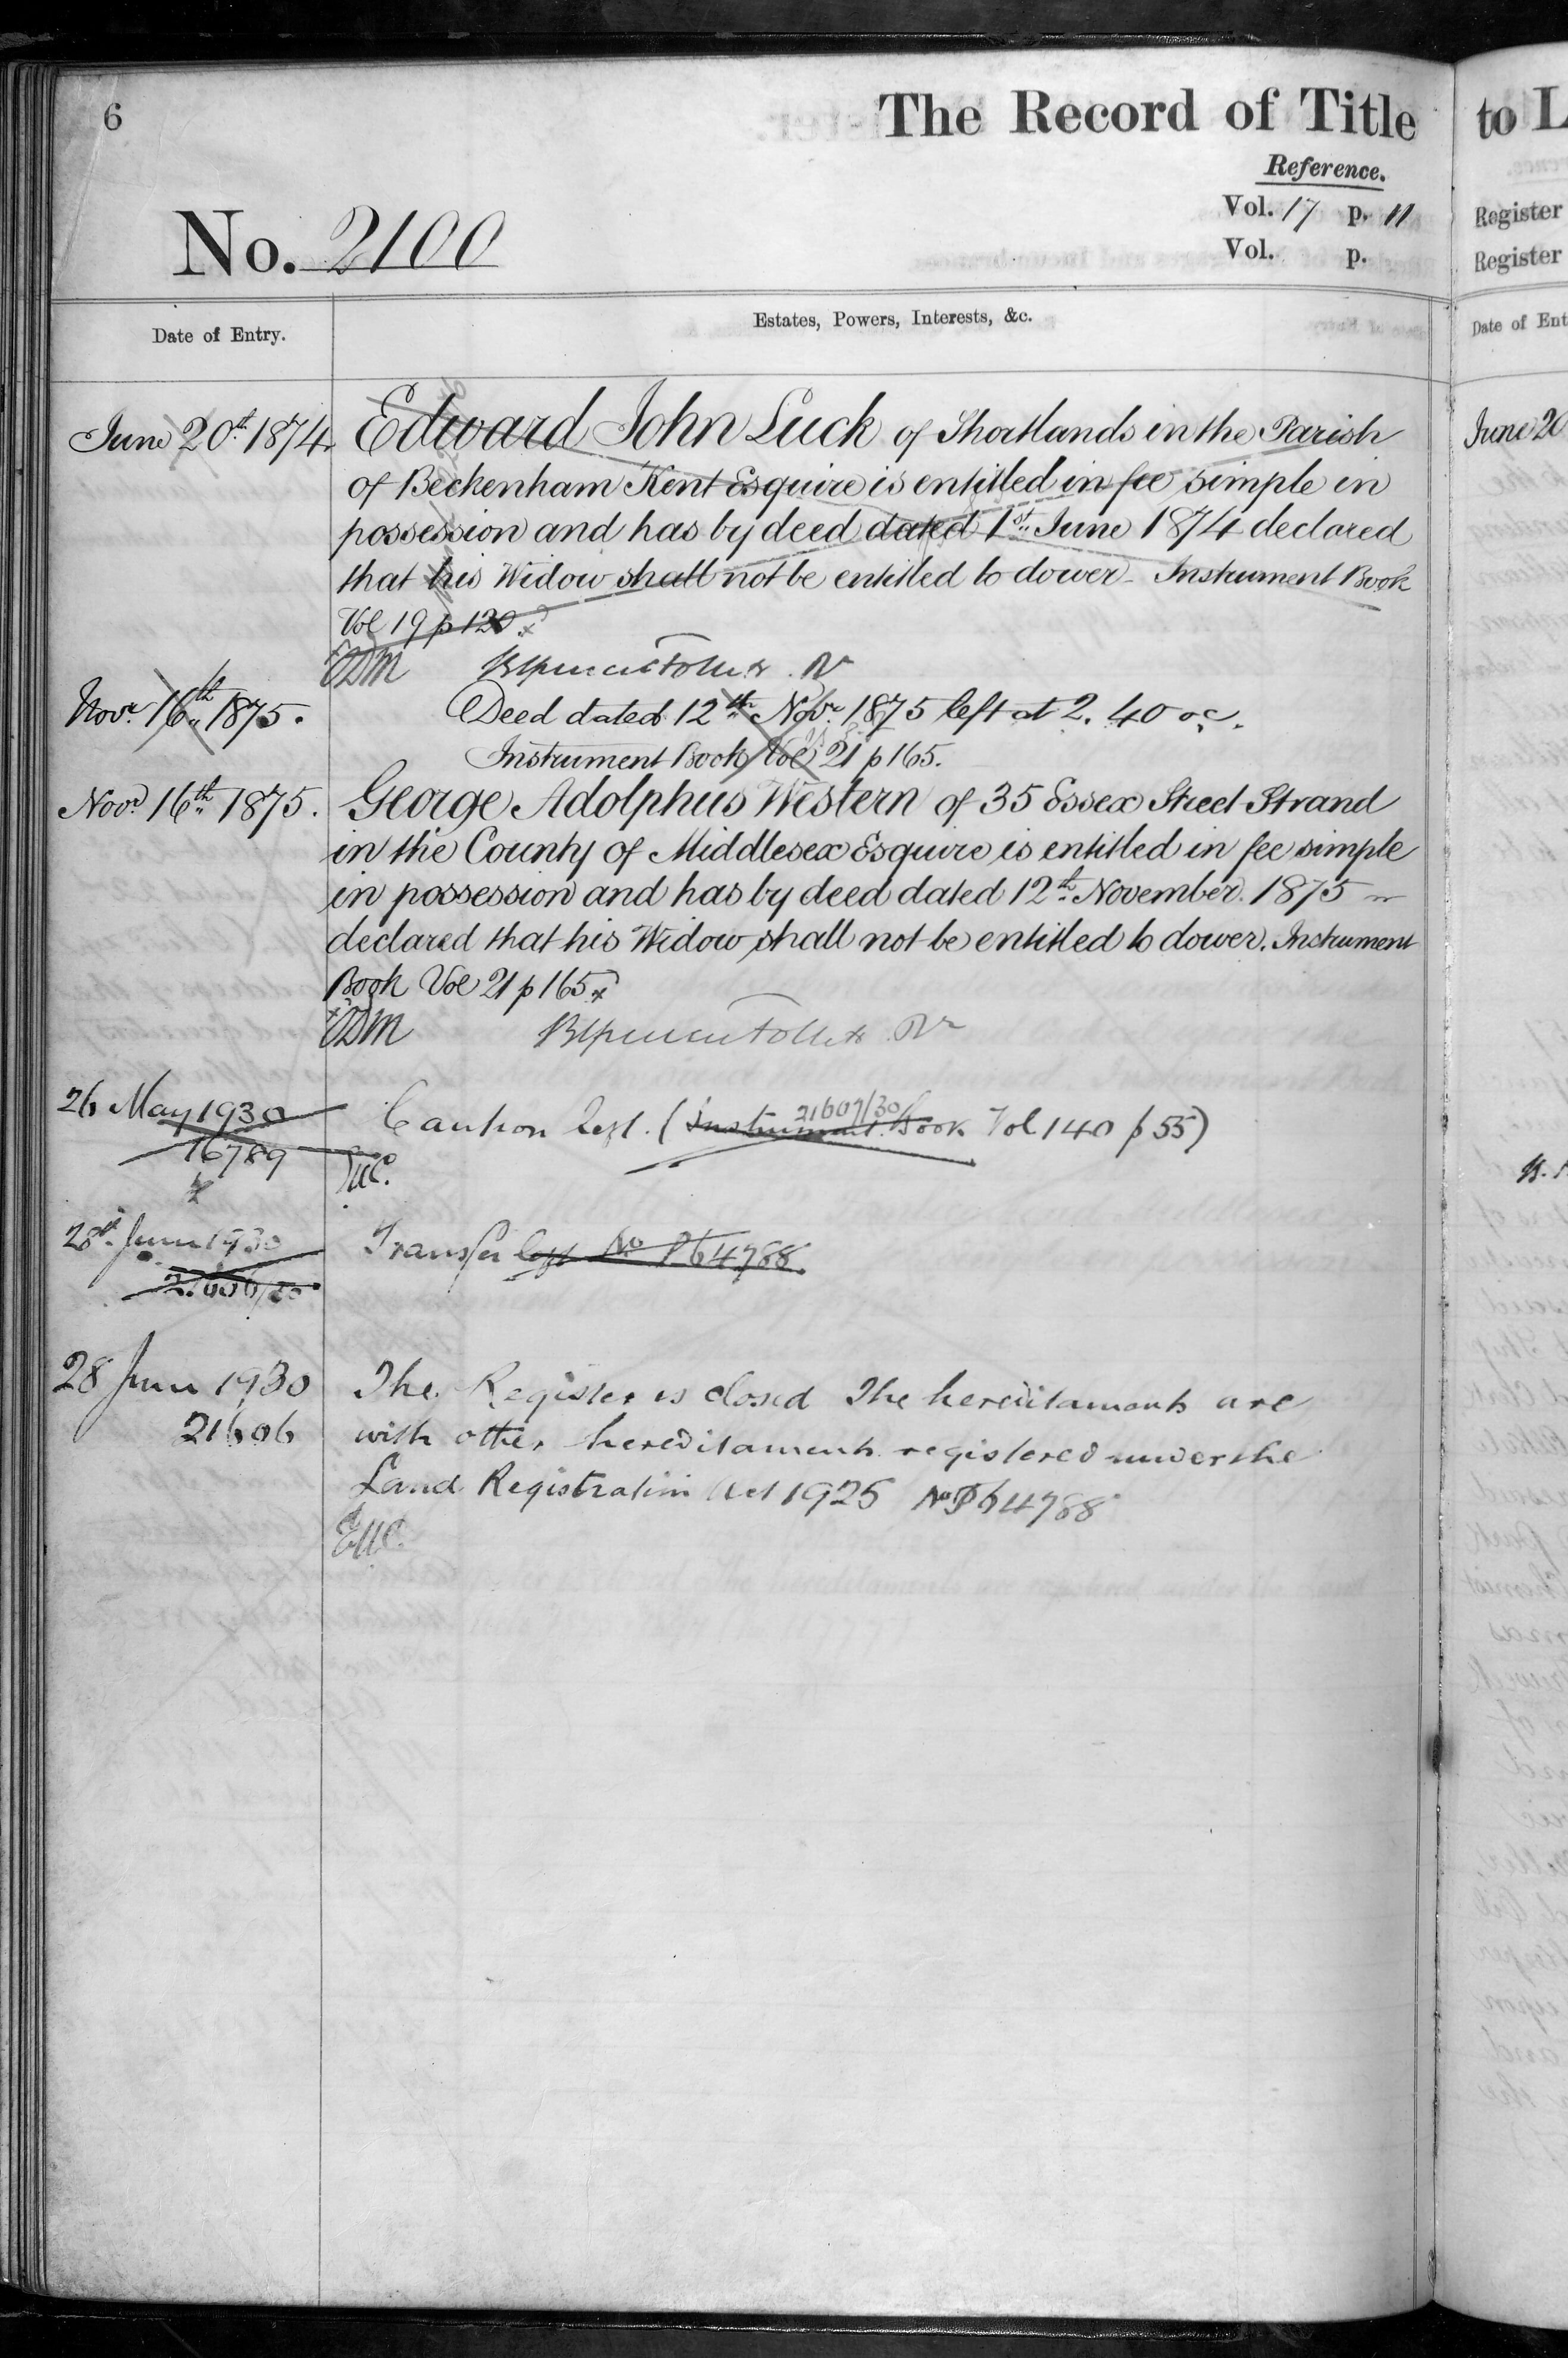 6
The Record of Title
Reference.
Vol. 17 p. 11
No. 2100
Vol. p.
Date of Entry.
Estates, Powers, Interests, &c.
June 20th 1874. Edward John Luck of Shortlands in the Parish
of Beckenham Kent Esquire is entitled in fee simple in
possession and has by deed dated 1st June 1874 declared
that his Widow shall not be entitled to dower - Instrument Book
Vol 19 p 120
Novr. 16th 1875. Deed dated 12th Novr. 1875 left at 2. 40 oc.
Instrument Book Vol 21 p 165.
Novr 16th 1875. George Adolphus Western of 35 Essex Street Strand
in the County of Middlesex Esquire is entitled in fee simple
in possession and has by deed dated 12th November 1875
declared that his Widow shall not be entitled to dower. Instrument
Book Vol 21 p 165
26 May 1930
21607/30
Caution Regt. (Instrument Book Vol 140 p 55)
16789
28th June 1930
Transfer Regt No P64788.
21606/30
28 June 1930 The Register is closed The hereditaments are
21606 with other hereditaments registered under the
Land Registration Act 1925 No P64788
to L
Register
Register
Date of Ent
June 20